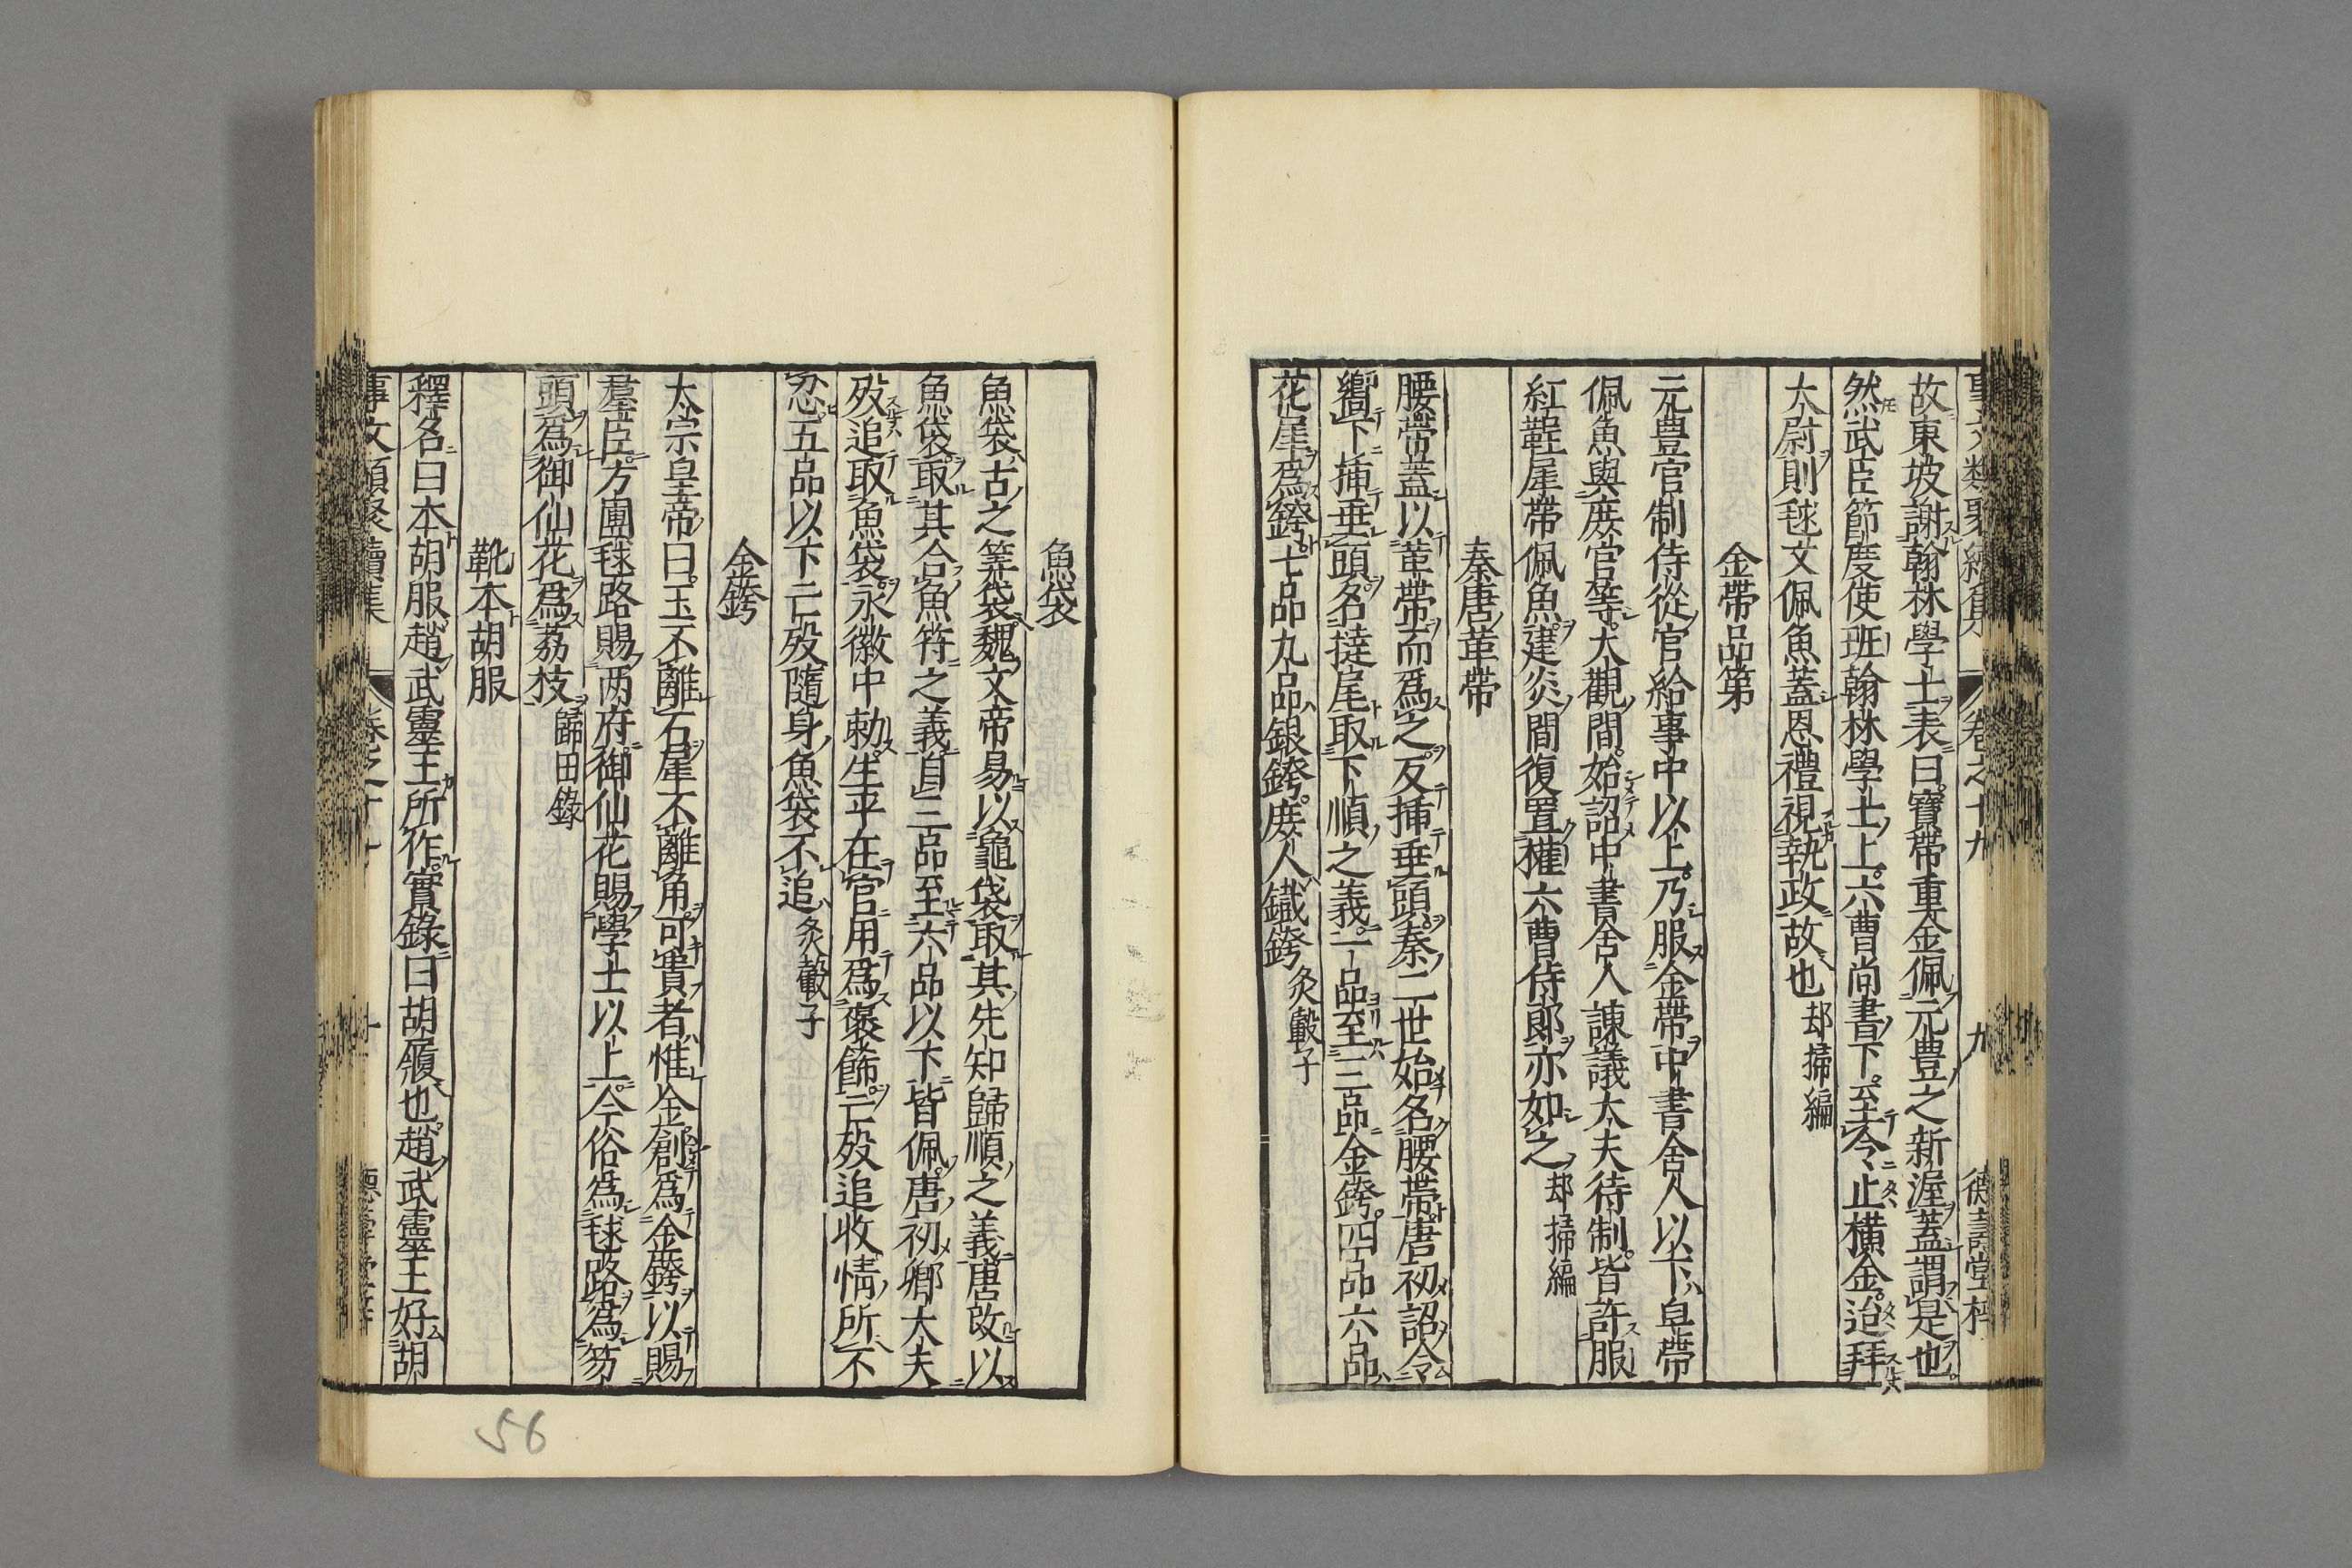 事文類聚續集 卷之十九 九 德壽堂梓
故東坡謝翰林學士表曰寶帶重金佩元豊之新渥蓋謂是也
然武臣節度使班翰林學士上六曹尚書下至今止橫金迨拜
太尉則毬文佩魚蓋恩禮視執政故也 却掃編
金帶品第
元豊官制侍從官給事中以上乃服金帶中書舍人以下皂帶
佩魚與庶官等大觀間始詔中書舍人諫議大夫待制皆許服
紅鞓犀帶佩魚建炎間復置權六曹侍郎亦如之 却掃編
秦唐革帶
腰帶蓋以革帶而爲之反揷垂頭秦二世始名腰帶唐初詔令
嚮下揷垂頭名撻尾取下順之義一品至三品金銙四品六品
花犀爲銙七品九品銀銙庶人鐵銙 灸轂子
魚袋
魚袋古之筭袋魏文帝易以龜袋取其先知歸順之義唐改以
魚袋取其合魚符之義自三品至六品以下皆佩唐初卿大夫
歿追取魚袋永徽中勅生平在官用爲褒飾亡歿追收情所不
忍五品以下亡歿隨身魚袋不追 灸轂子
金銙
太宗皇帝曰玉不離石犀不離角可貴者惟金創爲金銙以賜
羣臣方團毬路賜两府御仙花賜學士以上今俗爲毬路爲笏
頭爲御仙花爲荔枝 歸田錄
靴本胡服
釋名曰本胡服趙武靈王所作實錄曰胡履也趙武靈王好胡